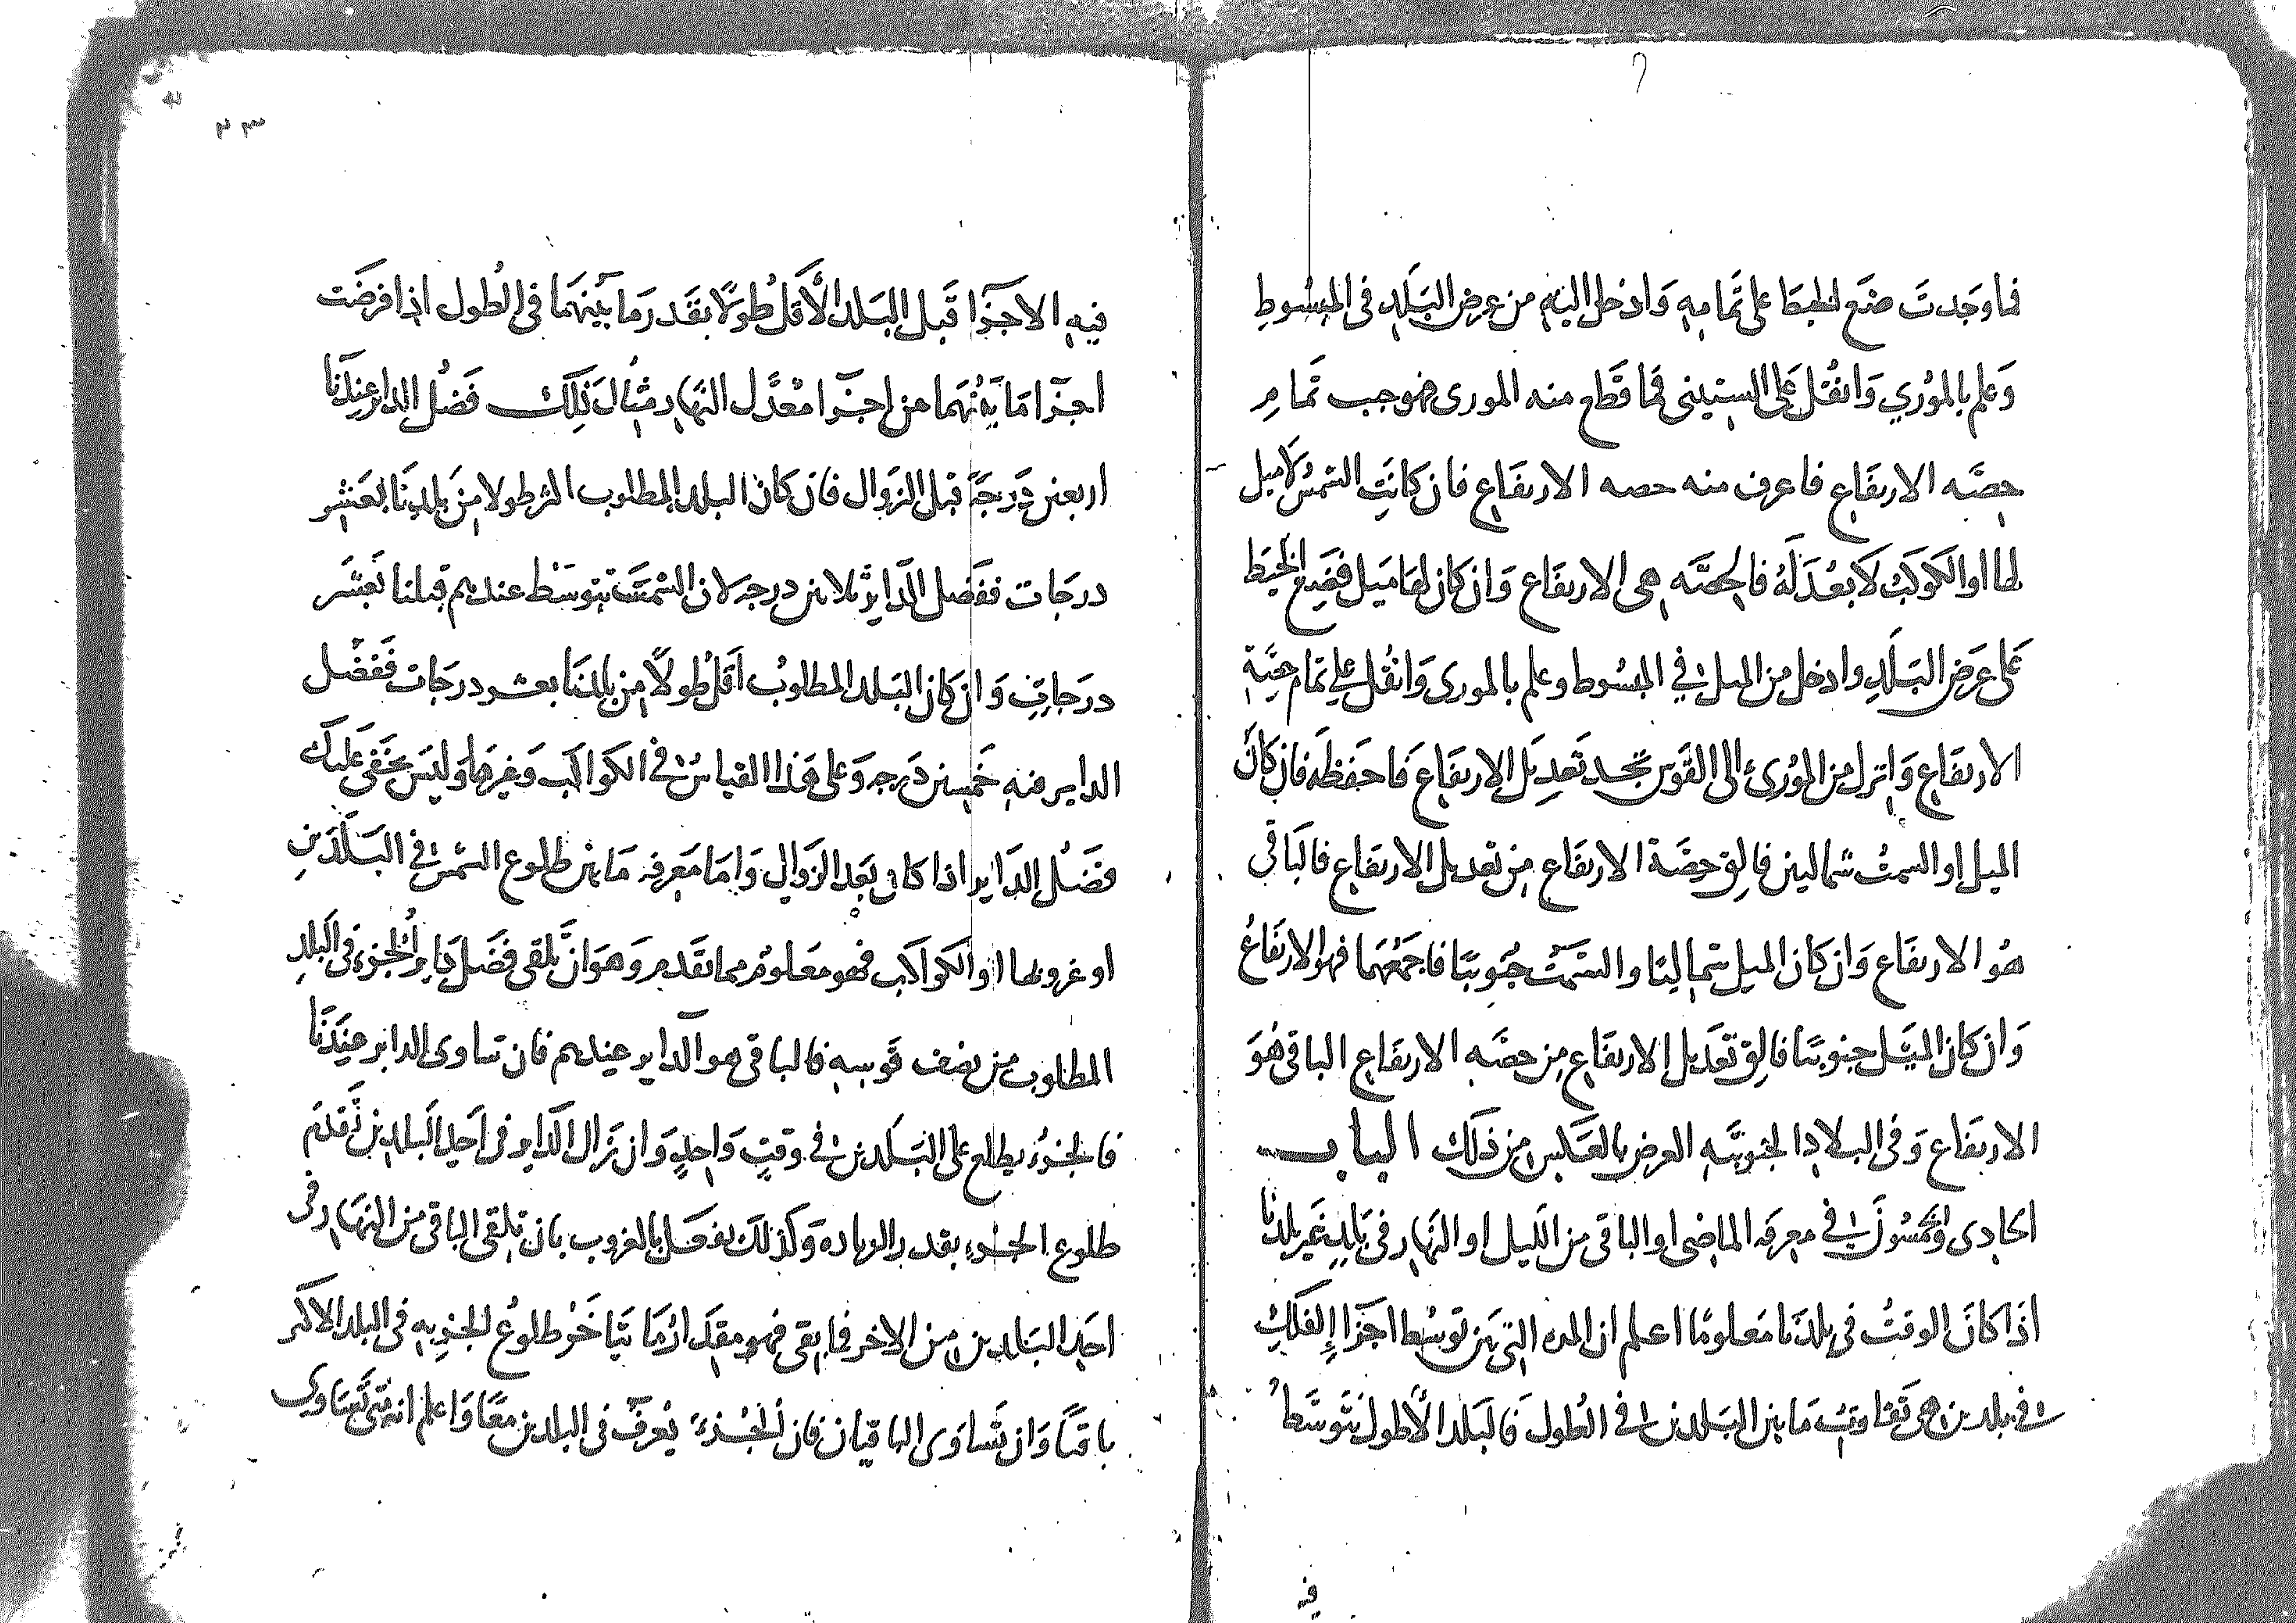 فما وجدت ضع الخيط على تمامه وادخل اليه من عرض البلد فى المبسوط
وعلم بالموري وانقل على الستينى فما قطع منه المورى فهو جيب تمام
حصه الارتفاع فاعرف منه حصه الارتفاع فان كانت الشمس لا ميل
لها او الكوكب لا بعد له فالحصه هى الارتفاع وان كان لها ميل فضع الخيط
على عرض البلد وادخل من الميل فى المبسوط وعلم بالمورى وانقل على تمام حصة
الارتفاع وانزل من المورى الى القوس تجد تعديل الارتفاع فاحفظه فان كان
الميل او السمت شماليين فالق حصة الارتفاع من تعديل الارتفاع فالباقى
هو الارتفاع وان كان الميل شماليا والسمت جنوبيا فاجمعهما فهو الارتفاع
وان كان الميل جنوبيا فالق تعديل الارتفاع من حصه الارتفاع الباقى هو
الارتفاع وفى البلاد الجنوبيه العرض بالعكس من ذلك الباب
الحادى والخمسون فى معرفه الماضى او الباقى من الليل او النهار فى بلد غير بلدنا
اذا كان الوقت فى بلدنا معلوما اعلم ان المده التى بين توسط اجزا الفلك
فى بلدين هى تفاوت ما بين البلدين فى الطول فالبلد الأطول يتوسط
فيه
٣٣
فيه الاجزا قبل البلد الأقل طولا بقدر ما بينهما فى الطول اذا فرضت
اجزا ما بينهما من اجزا معدل النهار مثال ذلك فضل الداير عندنا
اربعين درجة قبل الزوال فان كان البلد المطلوب اكثر طولا من بلدنا بعشر
درجات ففضل الداير ثلاثين درجه لان الشمس تتوسط عندهم قبلنا بعشر
درجات وان كان البلد المطلوب اقل طولا من بلدنا بعشر درجات ففضل
الداير منه خمسين درجه وعلى هذا القياس فى الكواكب وغيرها وليس يخفى عليك
فضل الداير اذا كان بعد الزوال واما معرفه ما بين طلوع الشمس فى البلدين
او غروبها او الكواكب فهو معلوم مما تقدم وهو ان تلقى فضل داير الجزء فى البلد
المطلوب من نصف قوسه فالباقى هو الداير عندهم فان تساوى الداير عندنا
فالجزء يطلع على البلدين فى وقت واحد وان زال الداير فى احد البلدين تقدم
طلوع الجزء بقدر الزياده وكذلك تفعل بالغروب بان تلقى الباقى من النهار فى
احد البلدين من الاخر فما بقى فهو مقدار ما يتاخر طلوع الجزء به فى البلد الاكثر
باقيا وان تساوى الباقيان فان الجزء يعرف فى البلدين معا واعلم انه متى تساوى